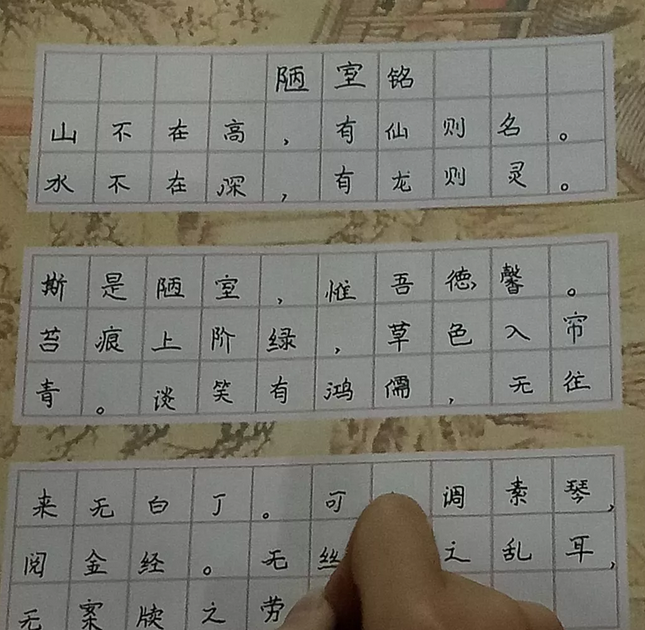 陋室铭
山不在高，有仙则名。
水不在深，有龙则灵。
斯是陋室，惟吾德馨。
苔痕上阶绿，草色入帘
青。谈笑有鸿儒，无往
来无白丁。可调素琴，
阅金经。无丝之乱耳，
无案牍之劳